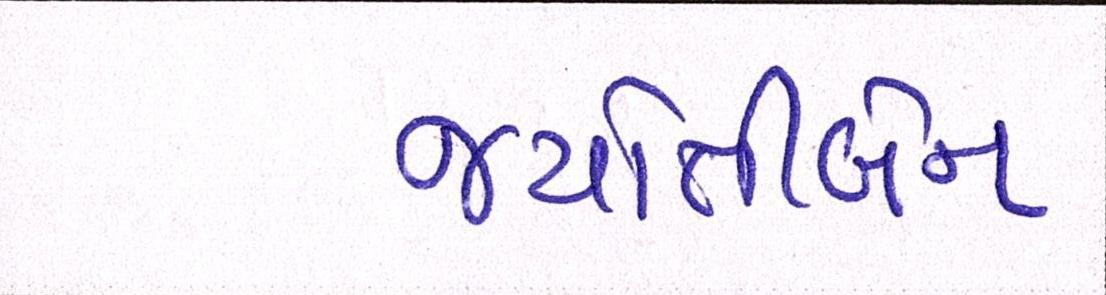 જયોતીબેન